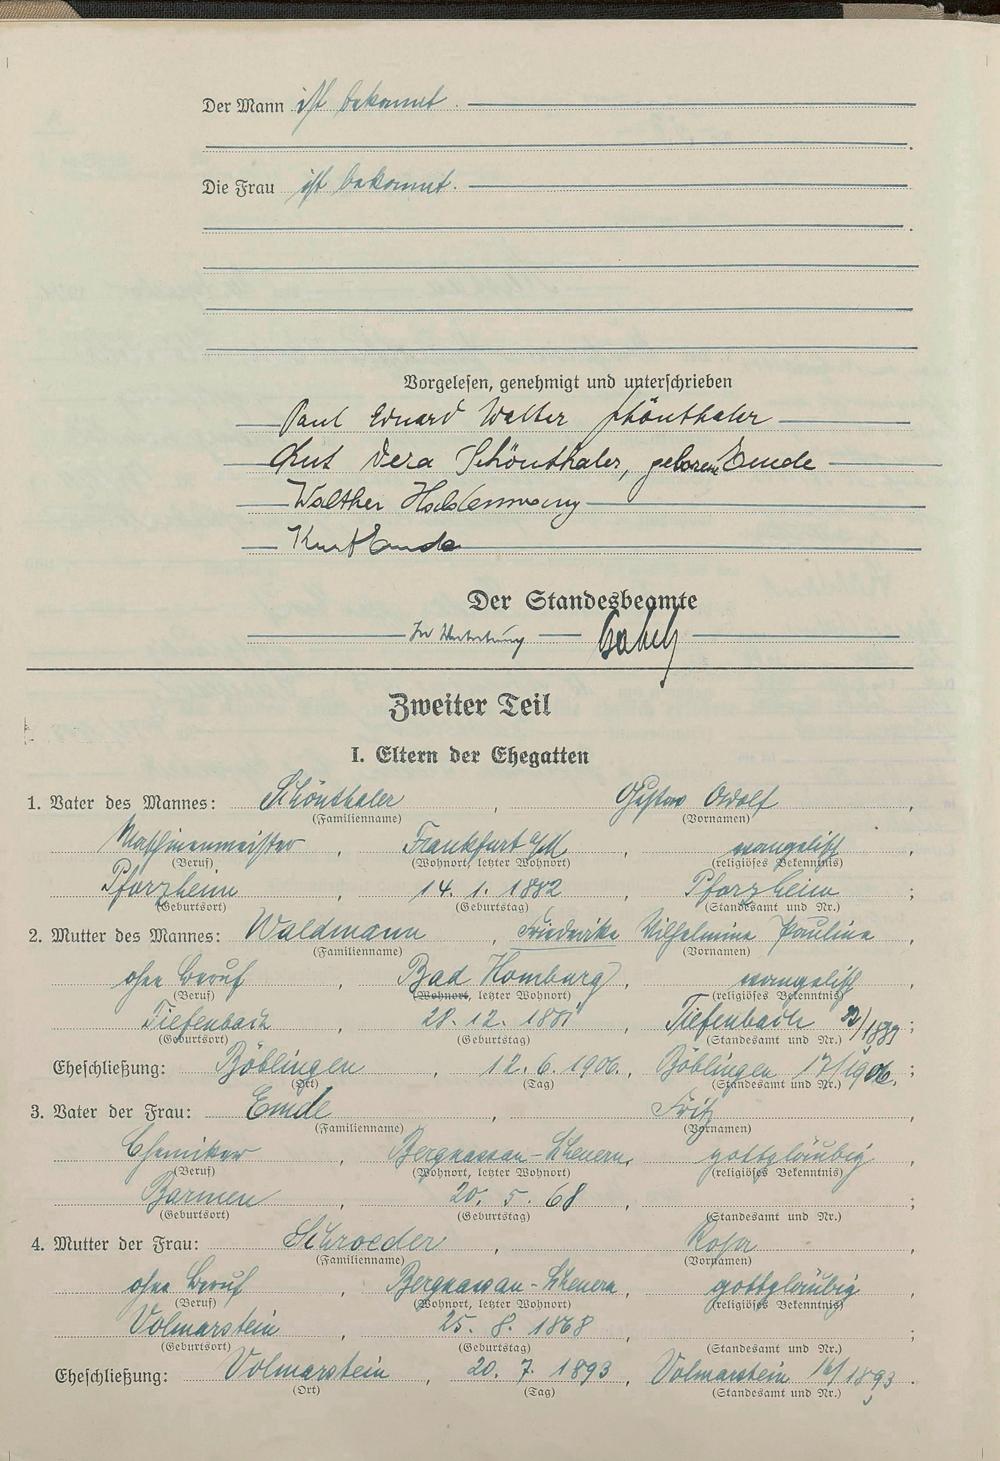 Der Mann ist bekannt.
Die Frau ist bekannt.
Vorgelesen, genehmigt und unterschrieben
Paul Eduard Walter Schönthaler
Vera Schönthaler, geborene Emde
Walther
Kurt Emde
Der Standesbeamte
In Vertretung
Zweiter Teil
I. Eltern der Ehegatten
1. Vater des Mannes: Schönthaler, Gustav Adolf,
(Familienname) (Vornamen)
Maschinenmeister, Frankfurt a/M, evangelisch,
(Beruf) (Wohnort, letzter Wohnort) (religiöses Bekenntnis)
Pforzheim, 14. 1. 1882, Pforzheim;
(Geburtsort) (Geburtstag) (Standesamt und Nr.)
2. Mutter des Mannes: Waldmann, Friederike Wilhelmine Pauline,
(Familienname) (Vornamen)
ohne Beruf, Bad Homburg, evangelisch,
(Beruf) (Wohnort, letzter Wohnort) (religiöses Bekenntnis)
Tiefenbach, 28. 12. Tiefenbach;
(Geburtsort) (Geburtstag) (Standesamt und Nr.)
Eheschließung: Böblingen, 12. 6. 1906., Böblingen 17/1906.
(Ort) (Tag) (Standesamt und Nr.)
3. Vater der Frau: Emde, Fritz,
(Familienname) (Vornamen)
Chemiker, Bergnassau-Scheuern, gottgläubig,
(Beruf) (Wohnort, letzter Wohnort) (religiöses Bekenntnis)
Barmen, 20. 5. 68, ;
(Geburtsort) (Geburtstag) (Standesamt und Nr.)
4. Mutter der Frau: Schroeder, Rosa,
(Familienname) (Vornamen)
ohne Beruf, Bergnassau-Scheuern, gottgläubig,
(Beruf) (Wohnort, letzter Wohnort) (religiöses Bekenntnis)
Volmarstein, 25. 8. 1868, ;
(Geburtsort) (Geburtstag) (Standesamt und Nr.)
Eheschließung: Volmarstein, 20. 7. 1893, Volmarstein 16/1893.
(Ort) (Tag) (Standesamt und Nr.)